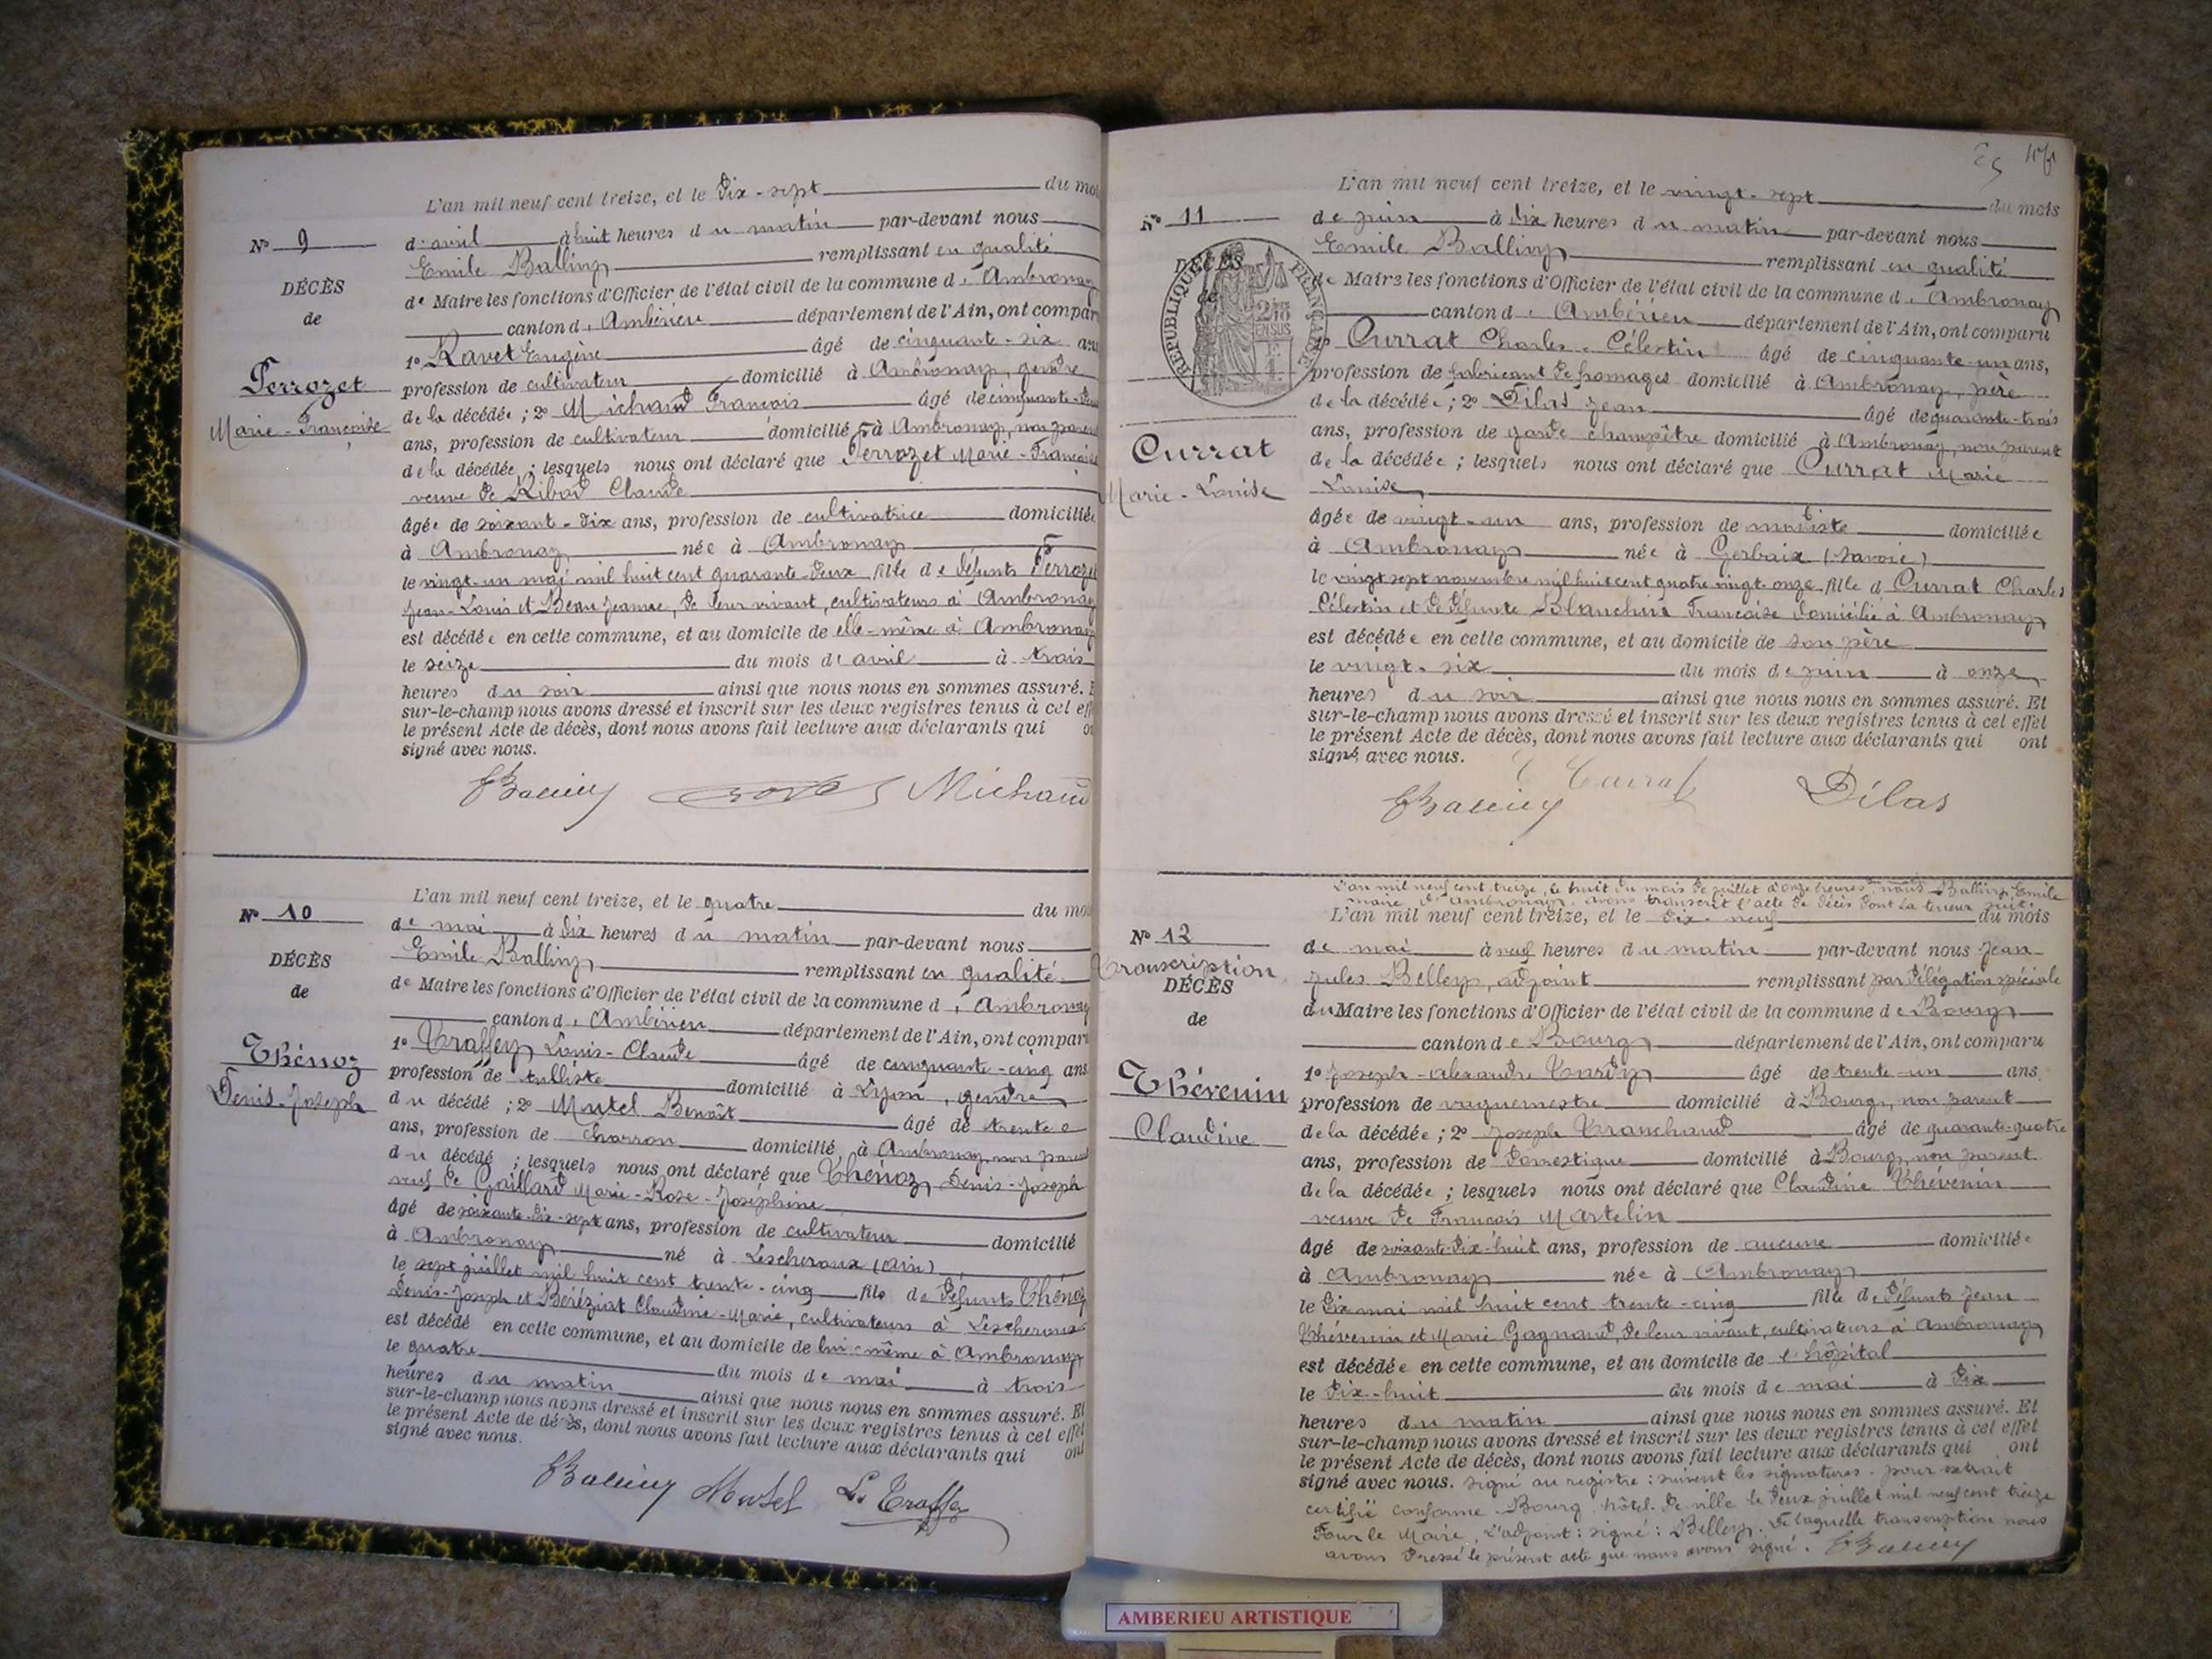 L'an mil neuf cent treize, et le dix-sept du mo
N° 9
d'avril à huit heures du matin par-devant nous
Emile Ballivy remplissant en qualité
DÉCÈS
de Maire les fonctions d'Officier de l'état civil de la commune d'Ambronay
de
canton d'Ambérieu département de l'Ain, ont compar
1° Ravet Eugène âgé de cinquante-six an
Perrozet
profession de cultivateur domicilié à Ambronay, gendre
Marie-Françoise
de la décédée; 2° Michaud François âgé de cinquante-
ans, profession de cultivateur domicilié à Ambronay, non paren
de la décédée; lesquels nous ont déclaré que Perrozet Marie-Françoise
veuve de Ribod Claude
âgée de soixant-dix ans, profession de cultivatrice domiciliée
à Ambronay née à Ambronay
le vingt-un mai mil huit cent quarante-deux fille de défunts Perrozet
Jean-Louis et Beau Jeanne, de leur vivant, cultivateurs à Ambronay
est décédée en cette commune, et au domicile de elle-même à Ambronay
le seize du mois d'avril à trois
heures du soir ainsi que nous nous en sommes assuré. E
sur-le-champ nous avons dressé et inscrit sur les deux registres tenus à cel eff
le présent Acte de décès, dont nous avons fait lecture aux déclarants qui on
signé avec nous.
Ballivy Michaud
L'an mil neuf cent treize, et le quatre du mo
N° 10
de mai à dix heures du matin par-devant nous
Emile Ballivy remplissant en qualité
DÉCÈS
de Maire les fonctions d'Officier de l'état civil de la commune d'Ambronay
de
canton d'Ambérieu département de l'Ain, ont compar
1° Traffey Louis-Claude âgé de cinquante-cinq ans
Thénoz
profession de tulliste domicilié à Lyon, gendre
Denis-Joseph
du décédé; 2° Mutel Benoît âgé de trente
ans, profession de charron domicilié à Ambronay, non parent
du décédé; lesquels nous ont déclaré que Thénoz Denis-Joseph
veuf de Gaillard Marie-Rose-Joséphine
âgé de soixante-dix-sept ans, profession de cultivateur domicilié
à Ambronay né à Lescheroux (Ain)
le sept juillet mil huit cent trente-cinq fils de défunts Thénoz
Denis-Joseph et Béréziat Claudine-Marie, cultivateurs à Lescheroux
est décédé en cette commune, et au domicile de lui-même à Ambronay
le quatre du mois de mai à trois
heures du matin ainsi que nous nous en sommes assuré. Et
sur-le-champ nous avons dressé et inscrit sur les deux registres tenus à cel effet
le présent Acte de décès, dont nous avons fait lecture aux déclarants qui ont
signé avec nous.
Ballivy Mutel L. Traffey
L'an mil neuf cent treize, et le vingt-sept du mois
N° 11
de juin à dix heures du matin par-devant nous
Emile Ballivy remplissant en qualité
DÉCÈS
de Maire les fonctions d'Officier de l'état civil de la commune d'Ambronay
de
RÉPUBLIQUE FRANÇAISE
2/10 EN SUS
canton d'Ambérieu département de l'Ain, ont comparu
1° Currat Charles-Célestin âgé de cinquante-un ans,
profession de fabricant de fromages domicilié à Ambronay, père
de la décédée; 2° Dilas Jean âgé de quarante-trois
Currat
ans, profession de garde champêtre domicilié à Ambronay, non parent
Marie-Louise
de la décédée; lesquels nous ont déclaré que Currat Marie
Louise
âgée de vingt-un ans, profession de modiste domiciliée
à Ambronay née à Gerbaix (Savoie)
le vingt sept novembre mil huit cent quatre vingt-onze fille d Currat Charles
Célestin et de défunte Blanchin Françoise domicilié à Ambronay
est décédée en cette commune, et au domicile de son père
le vingt-six du mois de juin à onze
heures du soir ainsi que nous nous en sommes assuré. Et
sur-le-champ nous avons dressé et inscrit sur les deux registres tenus à cel effet
le présent Acte de décès, dont nous avons fait lecture aux déclarants qui ont
signé avec nous.
Ballivy Currat Dilas
L'an mil neuf cent treize, le huit du mois de juillet à onze heures, nous Ballivy Emile
maire d'Ambronay, avons transcrit l'acte de décès dont la teneur suit:
L'an mil neuf cent treize, et le dix-neuf du mois
N° 12
de mai à neuf heures du matin par-devant nous Jean-
Transcription
Jules Belley, adjoint remplissant par délégation spéciale
DÉCÈS
du Maire les fonctions d'Officier de l'état civil de la commune de Bourg
de
canton de Bourg département de l'Ain, ont comparu
1° Joseph-Alexandre Tardy âgé de trente-un ans
Thévenin
profession de vaguemestre domicilié à Bourg, non parent
Claudine
de la décédée; 2° Joseph Tranchand âgé de quarante-quatre
ans, profession de domestique domicilié à Bourg, non parent
de la décédée; lesquels nous ont déclaré que Claudine Thévenin
veuve de François Martelin
âgé de soixante-dix-huit ans, profession de aucune domiciliée
à Ambronay née à Ambronay
le dix mai mil huit cent trente-cinq fille de défunts Jean
Thévenin et Marie Gagnaud, de leur vivant, cultivateurs à Ambronay
est décédée en cette commune, et au domicile de l'hôpital
le dix-huit du mois de mai à dix
heures du matin ainsi que nous nous en sommes assuré. Et
sur-le-champ nous avons dressé et inscrit sur les deux registres tenus à cel effet
le présent Acte de décès, dont nous avons fait lecture aux déclarants qui ont
signé avec nous. Signé au registre: suivent les signatures. pour extrait
certifié conforme. Bourg hôtel-de-ville le deux juillet mil neuf cent treize
Pour le Maire, L'adjoint: signé: Belley. De laquelle transcription nous
avons dressé le présent acte que nous avons signé. Ballivy
AMBERIEU ARTISTIQUE